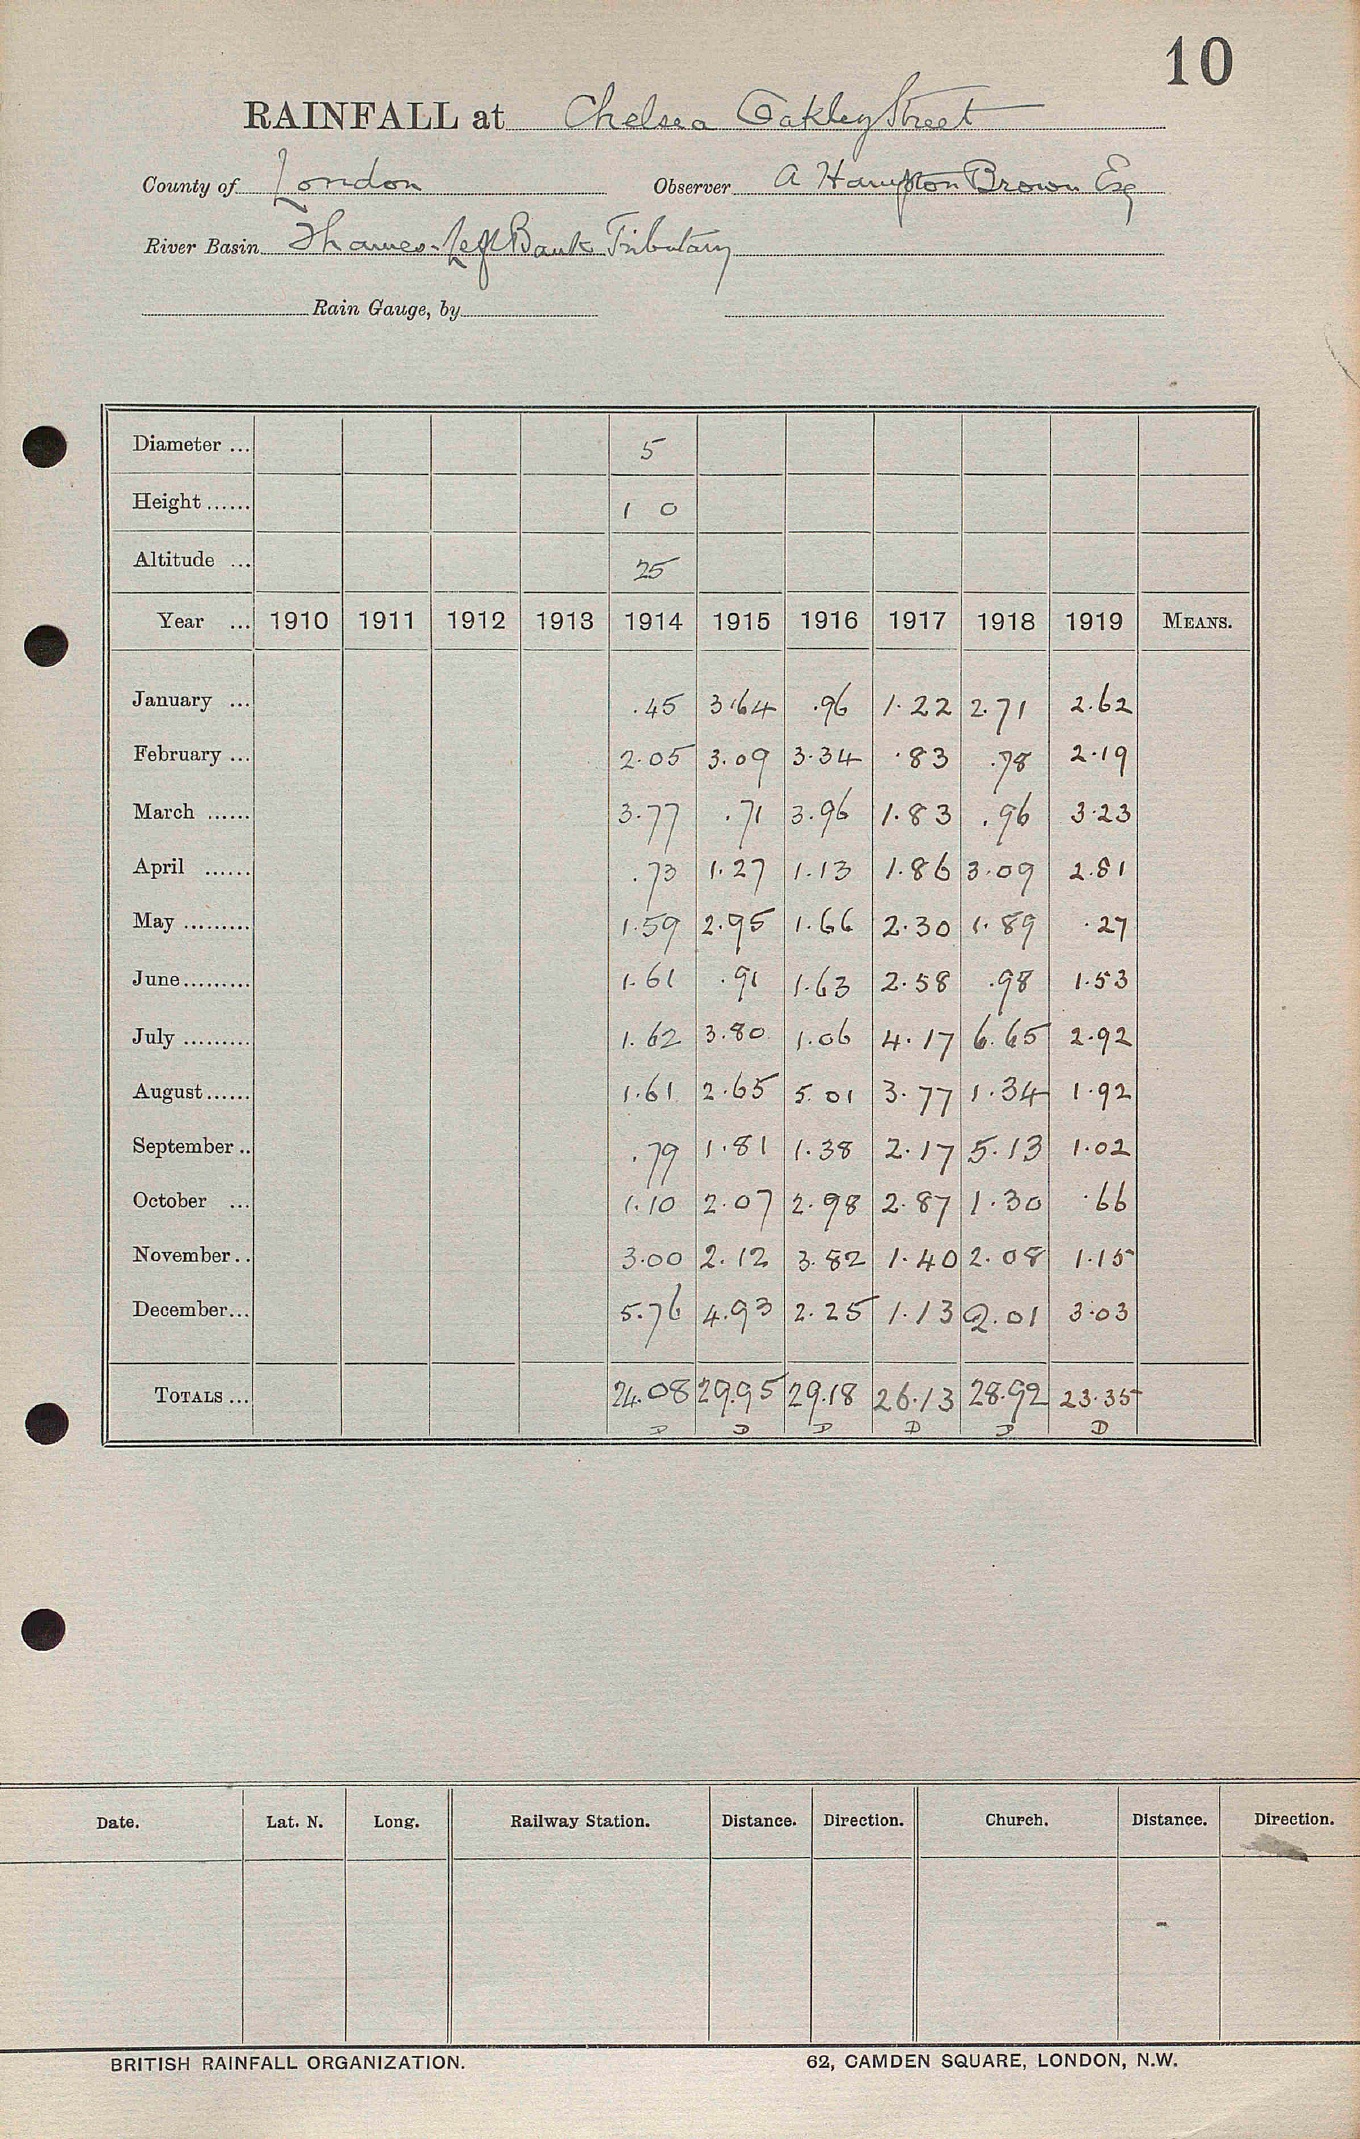 10
RAINFALL at Chelsea Oakley Street
County of London Observer A Hampton Brown Esq
River Basin Thames-Left Bank Tributary
Rain Gauge, by
Diameter ... 5
Height ...... 1 0
Altitude ... 25
Year ... 1910 1911 1912 1913 1914 1915 1916 1917 1918 1919 MEANS.
January ... .45 3.64 .96 1.22 2.71 2.62
February ... 2.05 3.09 3.34 .83 .78 2.19
March ...... 3.77 .71 3.96 1.83 .96 3.23
April ...... .73 1.27 1.13 1.86 3.09 2.81
May ......... 1.59 2.95 1.66 2.30 1.89 .27
June......... 1.61 .91 1.63 2.58 .98 1.53
July ......... 1.62 3.80 1.06 4.17 6.65 2.92
August...... 1.61 2.65 5.01 3.77 1.34 1.92
September .. .79 1.81 1.38 2.17 5.13 1.02
October ... 1.10 2.07 2.98 2.87 1.30 .66
November.. 3.00 2.12 3.82 1.40 2.08 1.15
December... 5.76 4.93 2.25 1.13 2.01 3.03
TOTALS ... 24.08 29.95 29.18 26.13 28.92 23.35
D D D D D D
Date. Lat. N. Long. Railway Station. Distance. Direction. Church. Distance. Direction.
BRITISH RAINFALL ORGANIZATION. 62, CAMDEN SQUARE, LONDON, N.W.